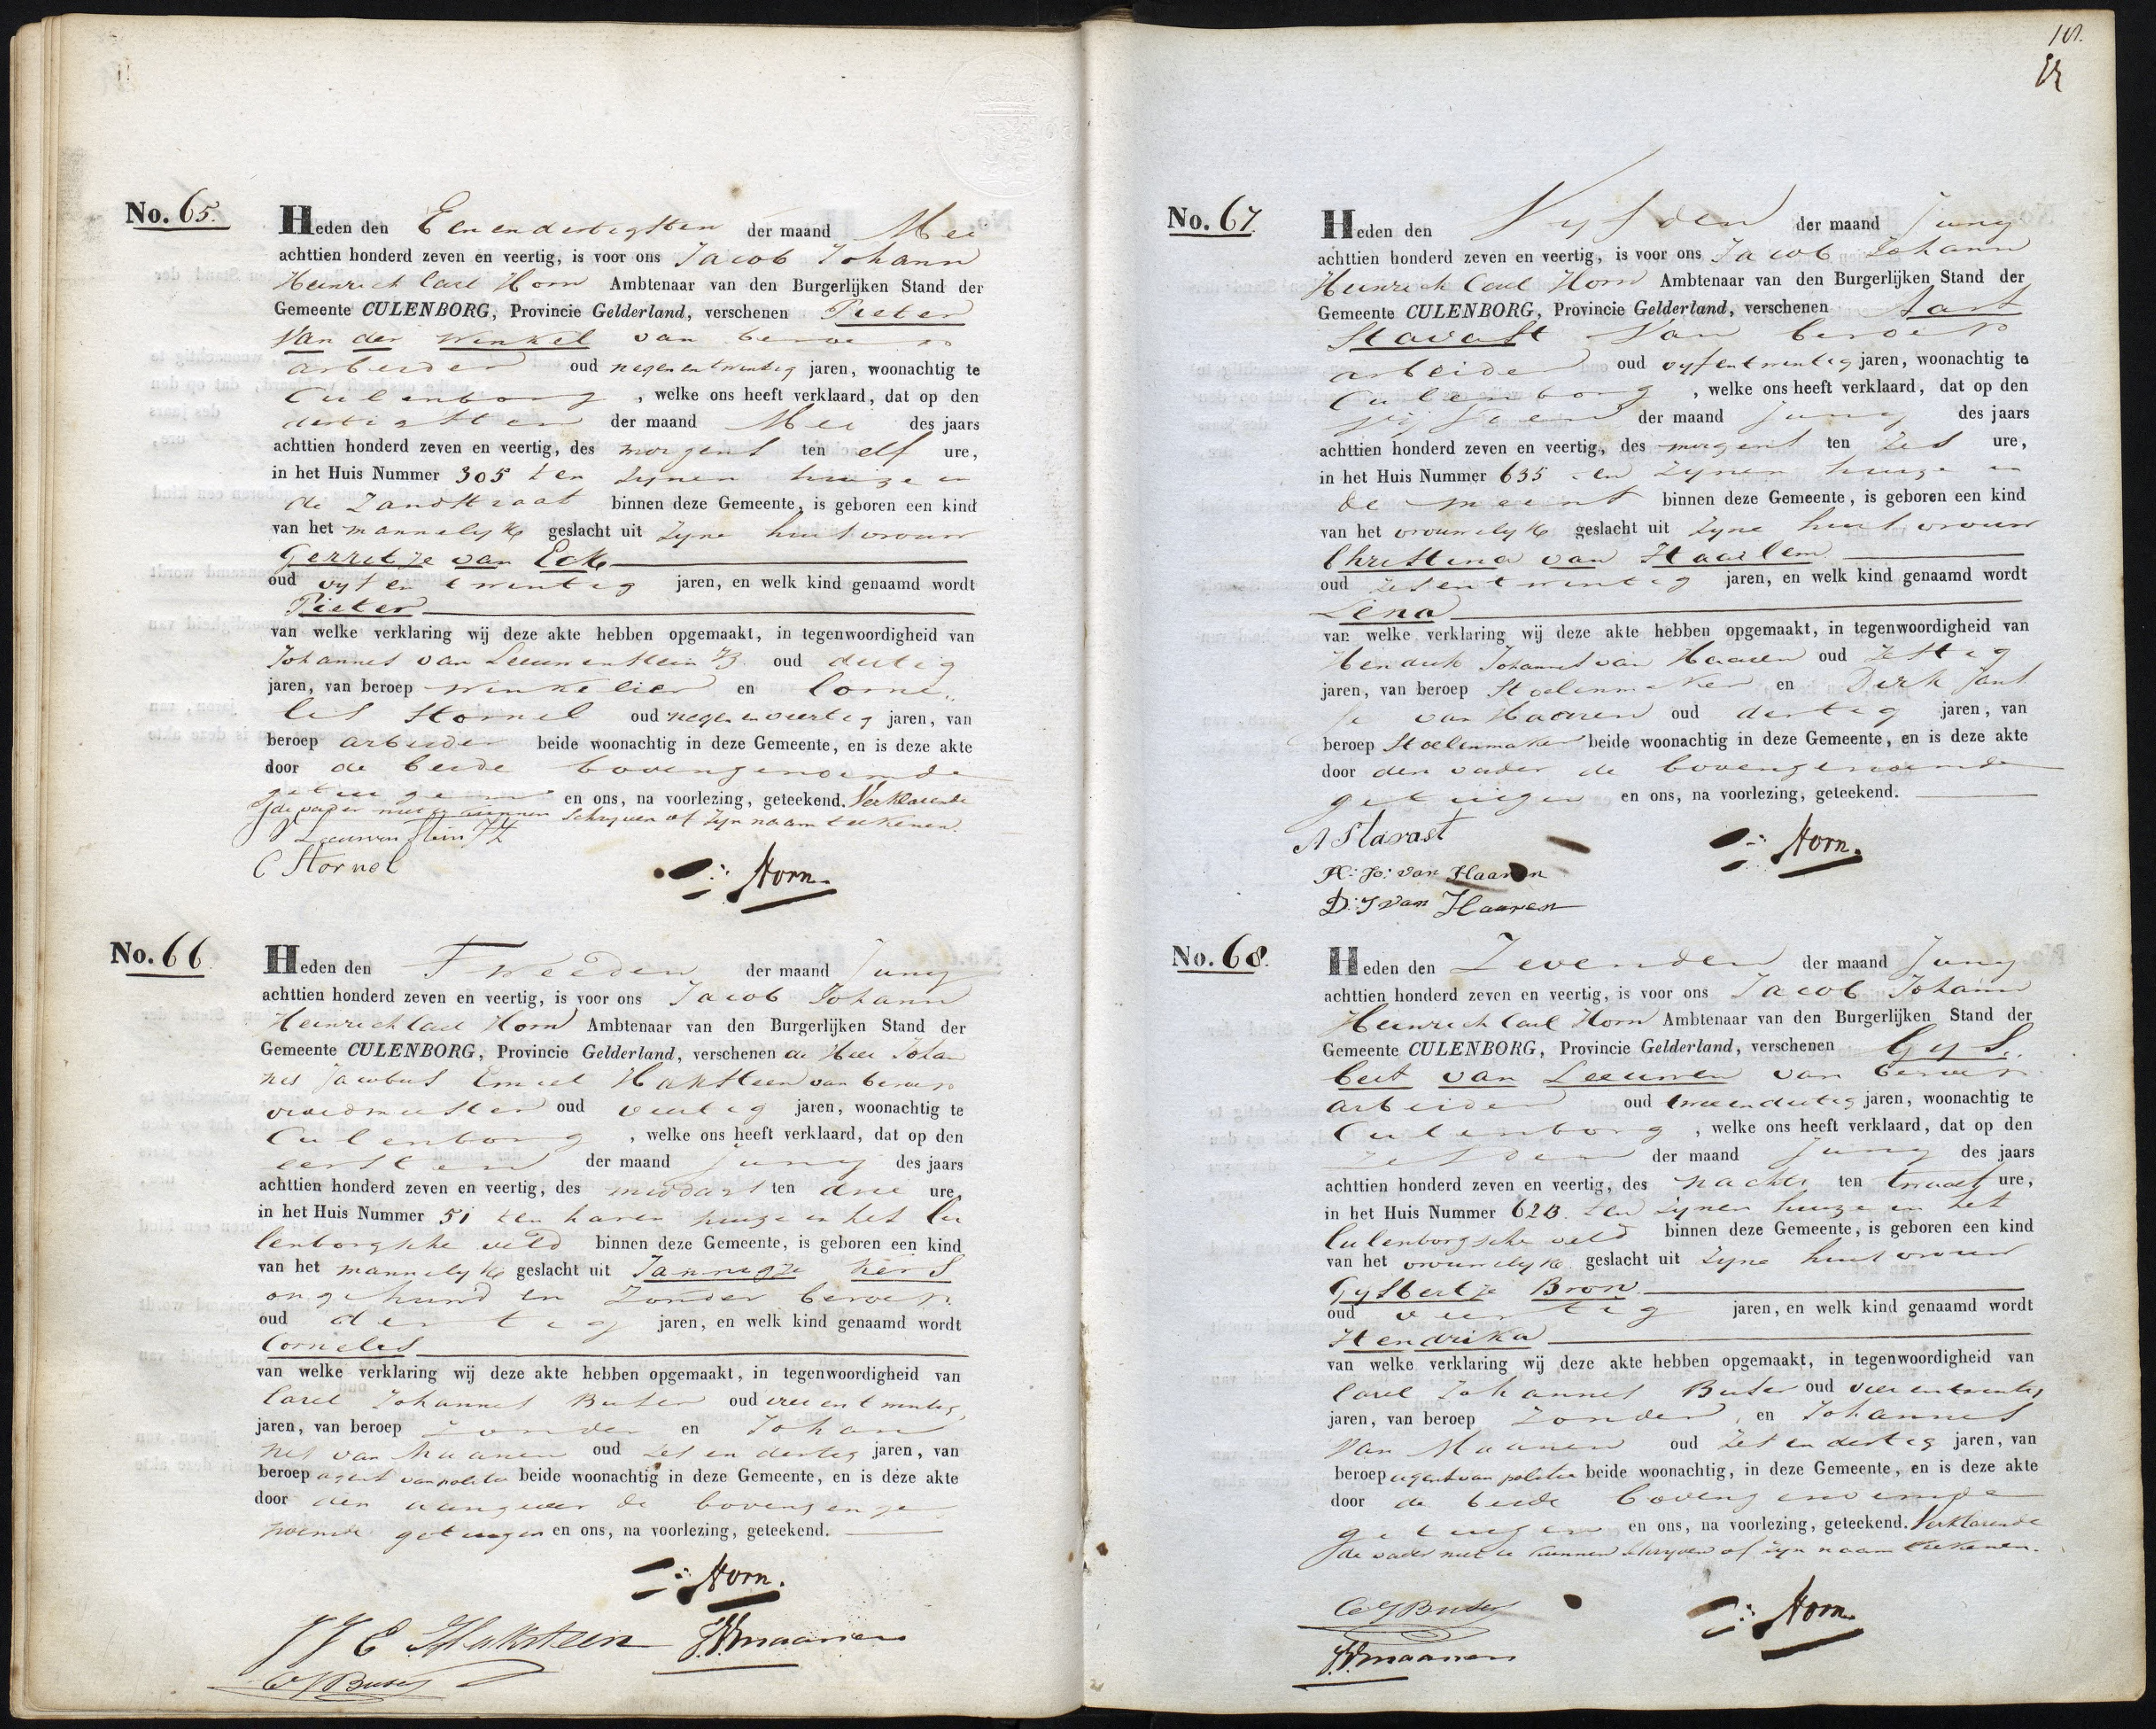 No. 65.
Heden den Eenendertigsten der maand Mei
achttien honderd zeven en veertig, is voor ons Jacob Johann
Heinrich Carl Horn Ambtenaar van den Burgerlijken Stand der
Gemeente CULENBORG, Provincie Gelderland, verschenen Pieter
Van der Winkel van beroep
arbeider oud negenentwintig jaren, woonachtig te
Culenborg, welke ons heeft verklaard, dat op den
dertigsten der maand Mei des jaars
achttien honderd zeven en veertig, des morgens ten elf ure,
in het Huis Nummer 305 ten zynen huize in
de Zandstraat binnen deze Gemeente, is geboren een kind
van het mannelyke geslacht uit zyne huisvrouw
Gerretje van Eck
oud vyfentwintig jaren, en welk kind genaamd wordt
Pieter
van welke verklaring wij deze akte hebben opgemaakt, in tegenwoordigheid van
Johannes van Leeuwenstein oud dertig
jaren, van beroep winkelier en Corne,,
lis Stornel oud negenenveertig jaren, van
beroep arbeider beide woonachtig in deze Gemeente, en is deze akte
door de beide bovengenoemde
getuigen en ons, na voorlezing, geteekend. Verklarende
de vader niet te kunnen schryven of zyn naam teekenen.
Leeuwenstein JZ
C Stornel
Horn.
No. 66
Heden den Tweeden der maand Juny
achttien honderd zeven en veertig, is voor ons Jacob Johann
Heinrich Carl Horn Ambtenaar van den Burgerlijken Stand der
Gemeente CULENBORG, Provincie Gelderland, verschenen de Heer Johan
nes Jacobus Emiel Haksteen van beroep
vroedmeester oud veertig jaren, woonachtig te
Culenborg, welke ons heeft verklaard, dat op den
eersten der maand Juny des jaars
achttien honderd zeven en veertig, des middags ten drie ure
in het Huis Nummer 51 ten haren huize in het Cu
lenborgsche veld binnen deze Gemeente, is geboren een kind
van het mannelyke geslacht uit Jannigje Kers
ongehuwd en zonder beroep
oud dertig jaren, en welk kind genaamd wordt
Cornelis
van welke verklaring wij deze akte hebben opgemaakt, in tegenwoordigheid van
Carel Johannes Buter oud vierentwintig
jaren, van beroep zonder en Johan
nes van Maanen oud zesendertig jaren, van
beroep agent van politie beide woonachtig in deze Gemeente, en is deze akte
door den aangever de bovengenge
noemde getuigen en ons, na voorlezing, geteekend.
Horn.
J J E Haksteen JVmaanen
CJ Buter
No. 67
Heden den Vyfden der maand Juny
achttien honderd zeven en veertig, is voor ons Jacob Johann
Heinrich Carl Horn Ambtenaar van den Burgerlijken Stand der
Gemeente CULENBORG, Provincie Gelderland, verschenen Aart
Stavast Van beroep
arbeider oud vyfentwintig jaren, woonachtig te
Culenborg, welke ons heeft verklaard, dat op den
vyfden der maand Juny des jaars
achttien honderd zeven en veertig, des morgens ten zes ure,
in het Huis Nummer 635 ten zynen huize in
de meent binnen deze Gemeente, is geboren een kind
van het vrouwelyke geslacht uit zyne huisvrouw
Christina van Haarlem
oud zesentwintig jaren, en welk kind genaamd wordt
Lena
van welke verklaring wij deze akte hebben opgemaakt, in tegenwoordigheid van
Hendrik Johannes van Haaren oud zestig
jaren, van beroep Stoelenmaker en Dirk Jans
je van Haaren oud dertig jaren, van
beroep Stoelenmaker beide woonachtig in deze Gemeente, en is deze akte
door den vader de bovengenoemde
getuigen en ons, na voorlezing, geteekend.
A Stavast
Horn.
H: Js: van Haaren
D: J van Haaren
No. 68.
Heden den Zevenden der maand Juny
achttien honderd zeven en veertig, is voor ons Jacob Johann
Heinrich Carl Horn Ambtenaar van den Burgerlijken Stand der
Gemeente CULENBORG, Provincie Gelderland, verschenen Gys,,
bert van Leeuwen van beroep
arbeider oud tweeendertig jaren, woonachtig te
Culenborg, welke ons heeft verklaard, dat op den
zesden der maand Juny des jaars
achttien honderd zeven en veertig, des nachts ten twaalf ure,
in het Huis Nummer 62B ten zynen huize in het
Culenborgsche veld binnen deze Gemeente, is geboren een kind
van het vrouwelyke geslacht uit zyne huisvrouw
Gysbertje Bron
oud veertig jaren, en welk kind genaamd wordt
Hendrika
van welke verklaring wij deze akte hebben opgemaakt, in tegenwoordigheid van
Carel Johannes Buter oud vierentwintig
jaren, van beroep zonder, en Johannes
Van Maanen oud zesendertig jaren, van
beroep agent van politie beide woonachtig, in deze Gemeente, en is deze akte
door de beide bovengenoemde
getuigen en ons, na voorlezing, geteekend. Verklarende
de vader niet te kunnen schryven of zyn naam teekenen.
CJ Buter
Horn.
JVmaanen